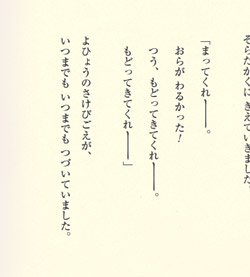 そらたかくに きえていきました。
「まってくれ――。
おらが わるかった!
つう、もどってきてくれ――。
もどってきてくれ――」
よひょうのさけびごえが、
いつまでも いつまでも つづいていました。